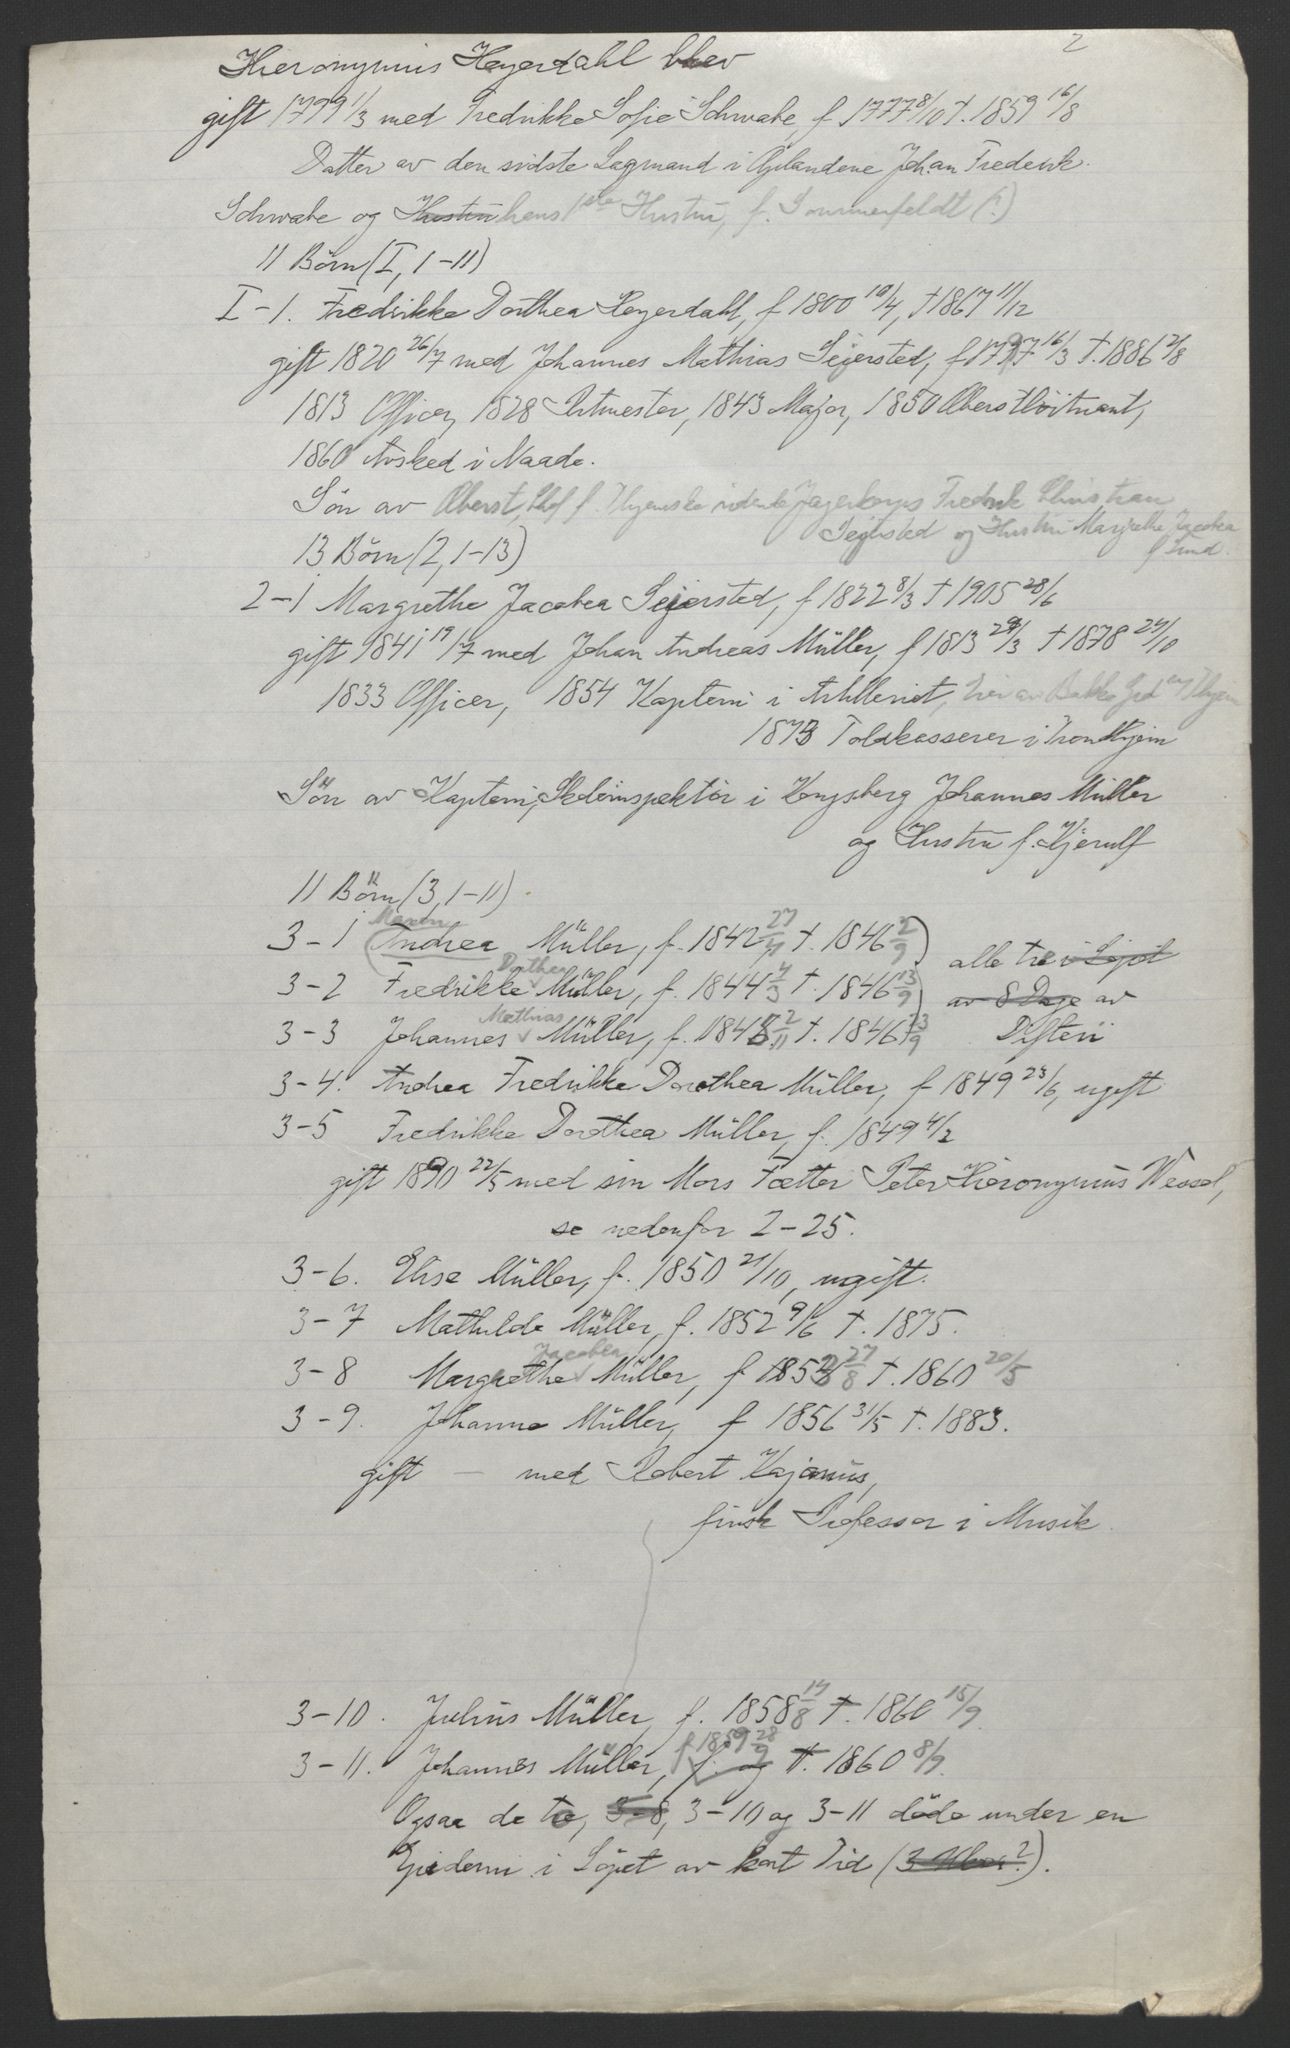 2
Hieronymus Heyerdahl blev
gift 1799 1/3 med Fredrikke Sofie Schwabe, f 1777 8/10 †. 1859 16/8
Datter av den sidste Lagmand i Oplandene Johan Frederik
Schwabe og Hustru hans 1ste Hustru, f. Sommerfeldt (?)
11 Börn (I, 1-11)
I-1. Fredrikke Dorthea Heyerdahl, f 1800 10/4, †1867 11/12
gift 1820 26/7 med Johannes Mathias Sejersted, f 1797 16/3 †. 1886 21/8
1813 Officer, 1828 Ritmester, 1843 Major, 1850 Oberstlöitnant,
1860 Avsked i Naade.
Sön av Oberst, Chef f. Thjemske ridende Jægerkorps Fredrik Christian
Sejersted og Hustru Margrethe Jacobea
f Lund.
13 Börn (2, 1-13)
2-1 Margrethe Jacobea Sejersted, f 1822 8/3 † 1905 28/6
gift 1841 19/7 med Johan Andreas Müller, f 1813 29/3 † 1878 24/10
1833 Officer, 1854 Kaptein i Artilleriet, Eier av Bakke Grd ved Thjem
1873 Toldkasserer i Trondhjem
Sön av Kaptein, Skoleinspektör i Kongsberg Johannes Müller
og Hustru f. Kjerulf
11 Börn (3, 1-11)
3-1 (Maren Andrea Müller, f. 1842 27/4 †. 1846 2/9) alle tre i Löpet
3-2 Fredrikke Dorthea Müller, f. 1844 4/3 †. 1846 13/9) av 8 Dage av
3-3 Johannes Mathias Müller, f. 1845 2/11 †. 1846 13/9 Difteri
3-4. Andrea Fredrikke Dorothea Müller, f 1849 23/6, ugift
3-5 Fredrikke Dorthea Müller, f. 1849 4/2
gift 1890 22/5 med sin Mors Fætter Peter Hieronymus Wessel,
se nedenfor 2-25.
3-6. Elise Müller, f. 1850 21/10, ugift.
3-7 Mathilde Müller, f. 1852 9/6 †. 1875.
3-8 Margrethe Jacobea Müller, f 1853 27/8 †. 1860 20/5
3-9. Johanne Müller, f 1856 31/5 †. 1883.
gift — med Robert Kajanus,
finsk Professor i Musik.
3-10. Julius Müller, f. 1858 14/8 †. 1860 15/9
3-11. Johannes Müller, f 1859 28/9 f. og †. 1860 8/9.
Ogsaa de to, 3-8, 3-10 og 3-11 döde under en
Epidemi i Löpet av kort Tid (3 Uker?).